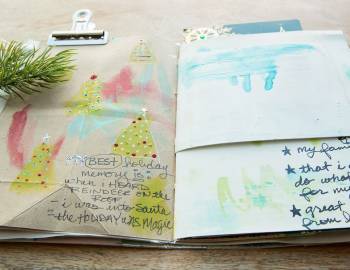 (BEST) holiday
memory is:
when i HEARD
REINDEER ON THE
ROOF
- i was into Santa
= the HOLIDAY WAS Magic
★ my fami
★ that i
do what
for my
★ great
from